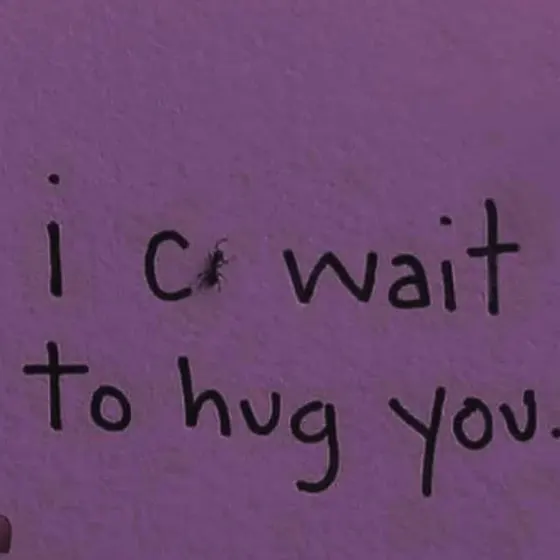 i c wait
to hug you.